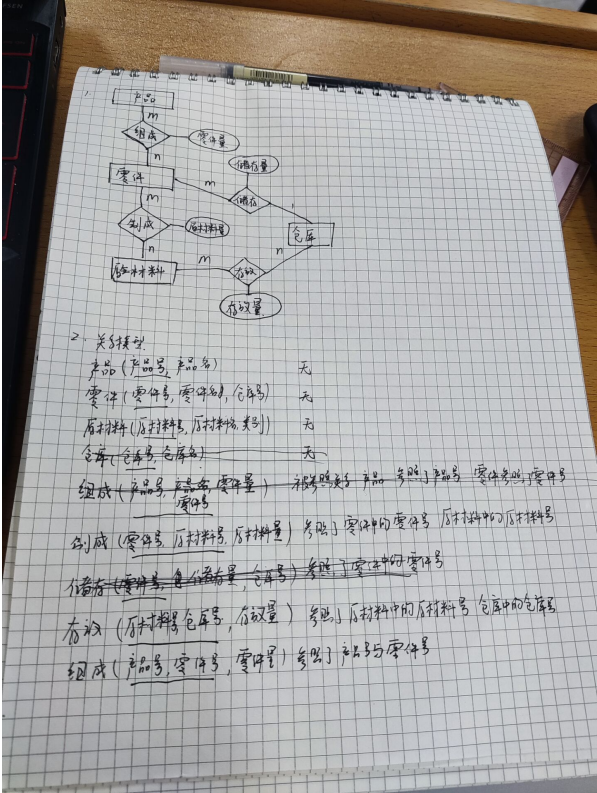 1
产品
m
组成
零件量
n
储存量
零件
m
m
储存
1
制成
原材料量
仓库
n
n
原材料
m
存放
存放量
2. 关系模型
产品(产品号, 产品名) 无
零件(零件号, 零件名, 仓库号) 无
原材料(原材料号, 原材料名, 类别) 无
仓库(仓库号 仓库名) 无
组成(产品号, 产品名, 零件量) 被参照关系 产品 参照了产品号 零件参照了零件号
零件号
制成(零件号 原材料号, 原材料量) 参照了零件中的零件号 原材料中的原材料号
储存(零件号, 储存量, 仓库号) 参照了零件中的零件号
存放(原材料号 仓库号, 存放量) 参照了原材料中的原材料号 仓库中的仓库号
组成(产品号, 零件号, 零件量) 参照了产品号与零件号